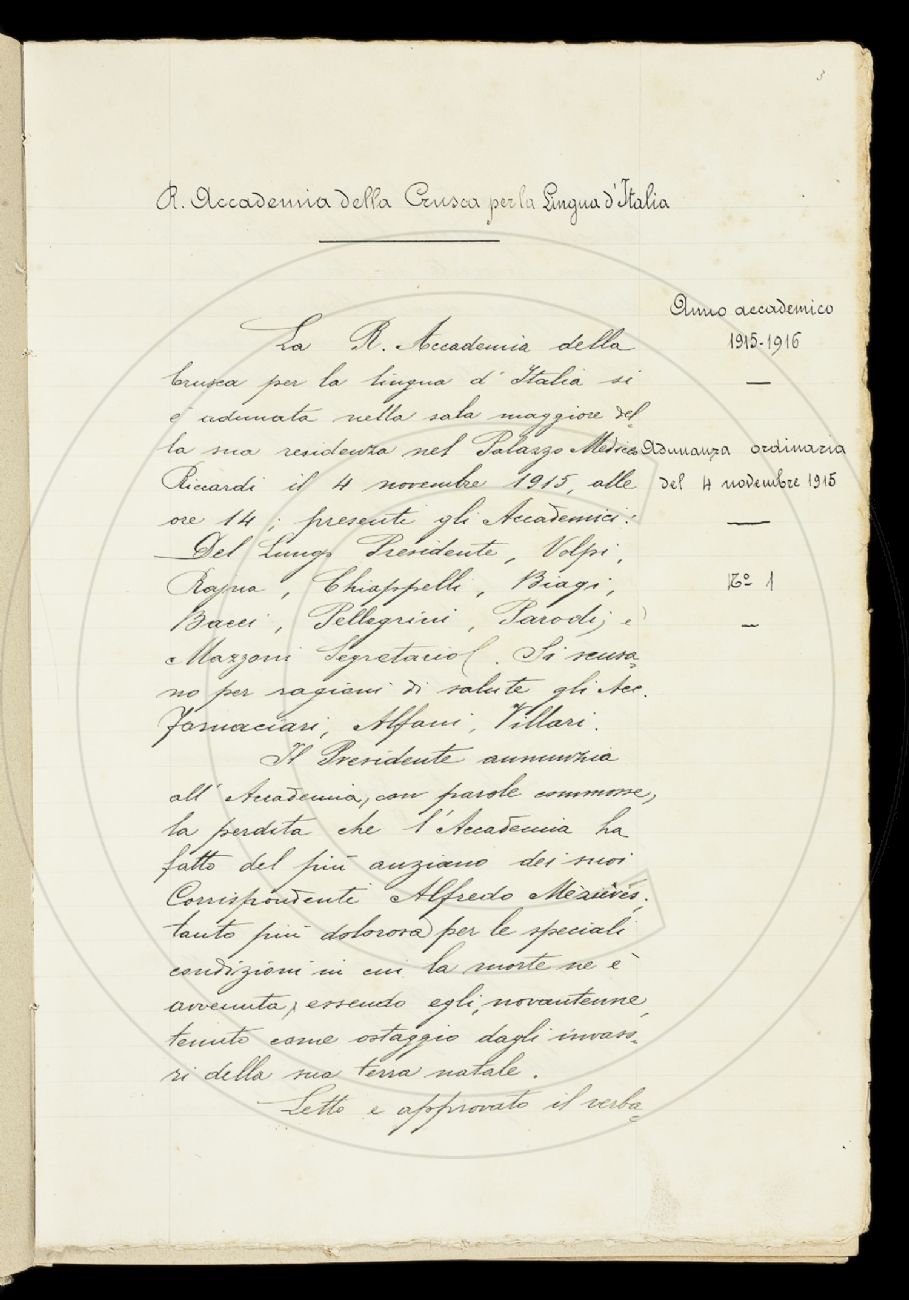 3
R. Accademia della Crusca per la Lingua d'Italia
Anno accademico
1915-1916
La R. Accademia della
Crusca per la lingua d'Italia si
è adunata nella sala maggiore del
la sua residenza nel Palazzo Medici
Adunanza ordinaria
Riccardi il 4 novembre 1915, alle
del 4 novembre 1915
ore 14; presenti gli Accademici:
Del Lungo Presidente, Volpi,
Rajna, Chiappelli, Biagi,
No 1
Bacci, Pellegrini, Parodi, e
Mazzoni Segretario. Si scusa=
no per ragioni di salute gli Acc.
Fornaciari, Alfani, Villari.
Il Presidente annunzia
all'Accademia, con parole commosse,
la perdita che l'Accademia ha
fatto del più anziano dei suoi
Corrispondenti Alfredo Mézières,
tanto più dolorosa per le speciali
condizioni in cui la morte ne è
avvenuta, essendo egli, novantenne,
tenuto come ostaggio dagli invaso=
ri della sua terra natale.
Letto e approvato il verba=